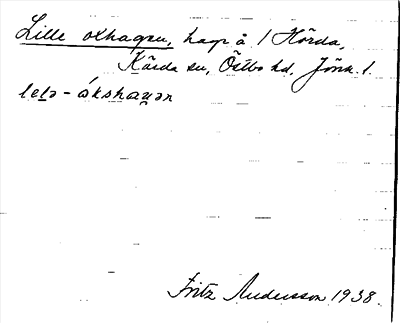 Lille oxhagen, hage å 1 Hörda,
Kärda sn, Östbo hd, Jönk. l.
letə - ákshaꭎən
Fritz Andersson 1938.